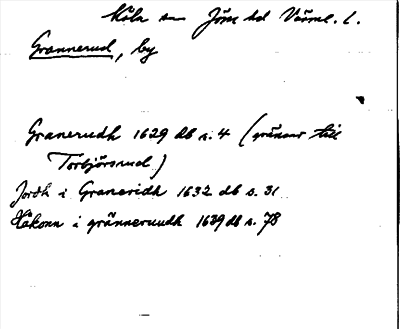 Köla sn Jösse hd Värml. l.
Grannerud, by
Granerudh 1629 db s. 4 (gränser till
Torbjörsrud)
Jordh i Graneridh 1632 db s. 31
Håkonn i grännerundh 1639 db s. 78